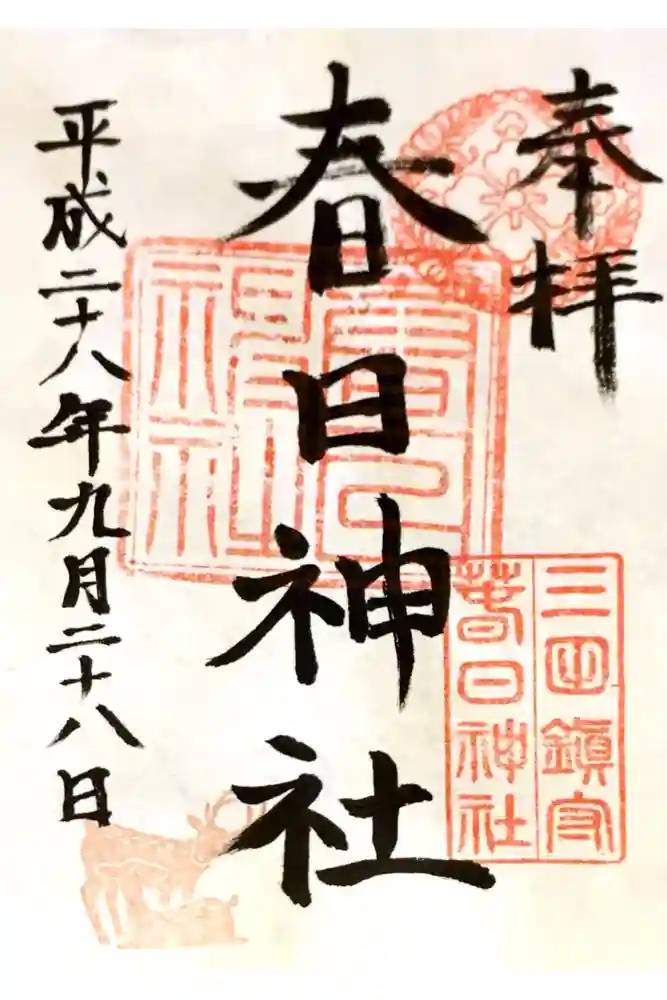 奉拝
三田鎮守
春日神社
春日神社
春日神社
平成二十八年九月二十八日